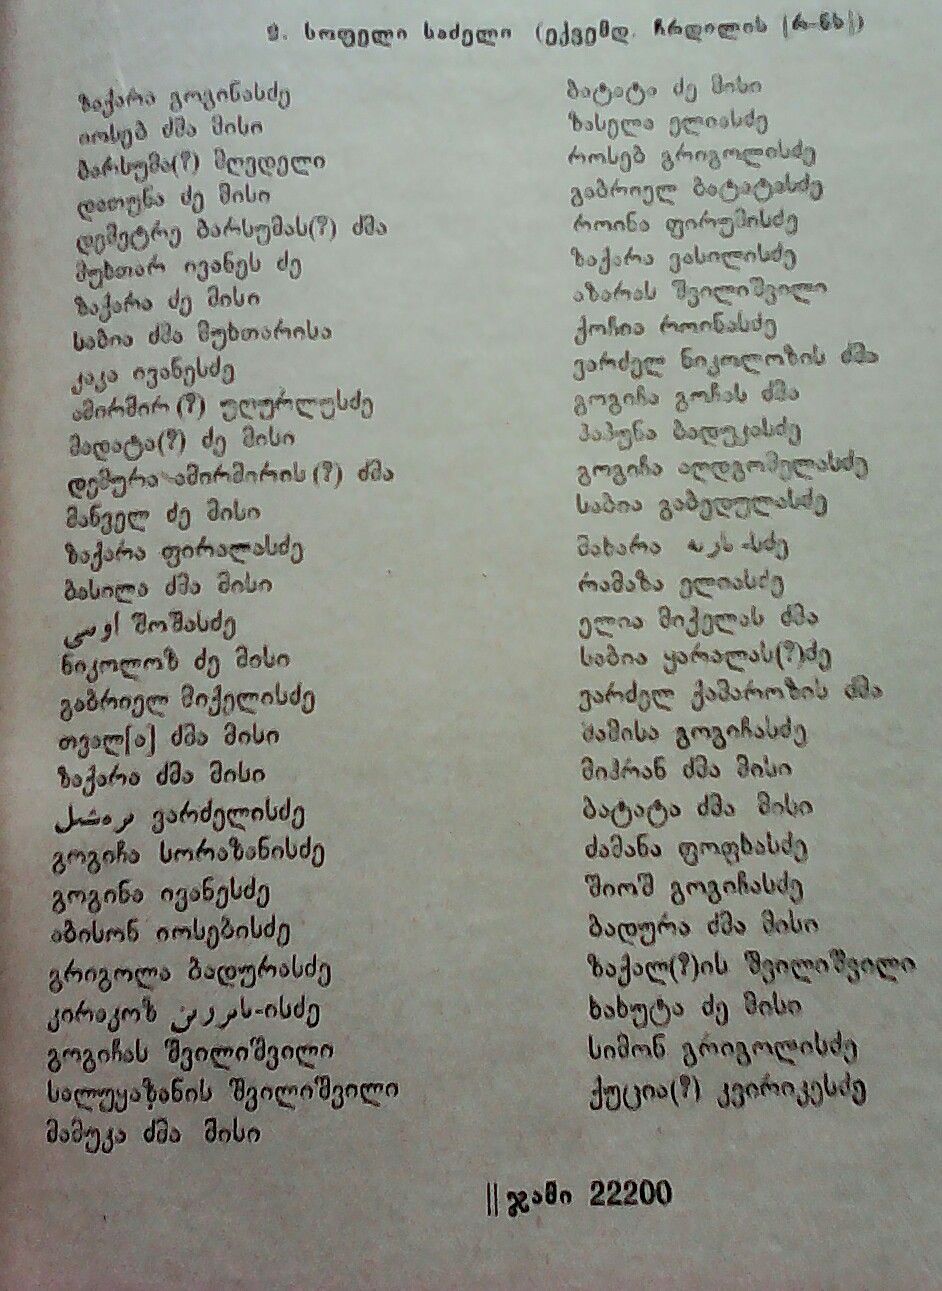 9. სოფელი საძელი (ექვემდ. ჩრდილის |რ-ნს|)
ზაქარა გოგინასძე
იოსებ ძმა მისი
ბარსუმა(?) მღვდელი
დათუნა ძე მისი
დემეტრე ბარსუმას(?) ძმა
მუხთარ ივანეს ძე
ზაქარა ძე მისი
საბია ძმა მუხთარისა
კაკა ივანესძე
ამირმირ (?) უღურლუსძე
მადატა(?) ძე მისი
დემურა ამირმირის (?) ძმა
მანველ ძე მისი
ზაქარა ფირალასძე
ბასილა ძმა მისი
შოშასძე
ნიკოლოზ ძე მისი
გაბრიელ მიქელისძე
თვალ[ა] ძმა მისი
ზაქარა ძმა მისი
ვარძელისძე
გოგიჩა სორაზანისძე
გოგინა ივანესძე
აბისონ იოსებისძე
გრიგოლა ბადურასძე
კირაკოზ -ისძე
გოგიჩას შვილიშვილი
სალუყაზანის შვილიშვილი
მამუკა ძმა მისი
ბატატა ძე მისი
ზასელა ელიასძე
როსებ გრიგოლისძე
გაბრიელ ბატატასძე
როინა ფირუმისძე
ზაქარა ვასილისძე
აზარას შვილიშვილი
ქოჩია როინასძე
ვარძელ ნიკოლოზის ძმა
გოგიჩა გოჩას ძმა
პაპუნა ბადუკასძე
გოგიჩა აღდგომელასძე
საბია გაბედულასძე
მახარა -სძე
რამაზა ელიასძე
ელია მიქელას ძმა
საბია ყარალას(?)ძე
ვარძელ ქამაროზის ძმა
მამისა გოგიჩასძე
მიჰრან ძმა მისი
ბატატა ძმა მისი
ძამანა ფოფხასძე
შიოშ გოგიჩასძე
ბადურა ძმა მისი
ზაქალ(?)ის შვილიშვილი
ხახუტა ძე მისი
სიმონ გრიგოლისძე
ქუცია(?) კვირიკესძე
|| ჯამი 22200